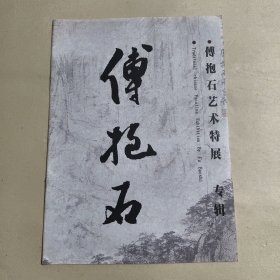 傅抱石艺术特展
Traditional Chinese Painting Exhibition By Fu Baoshi
专辑
傅抱石